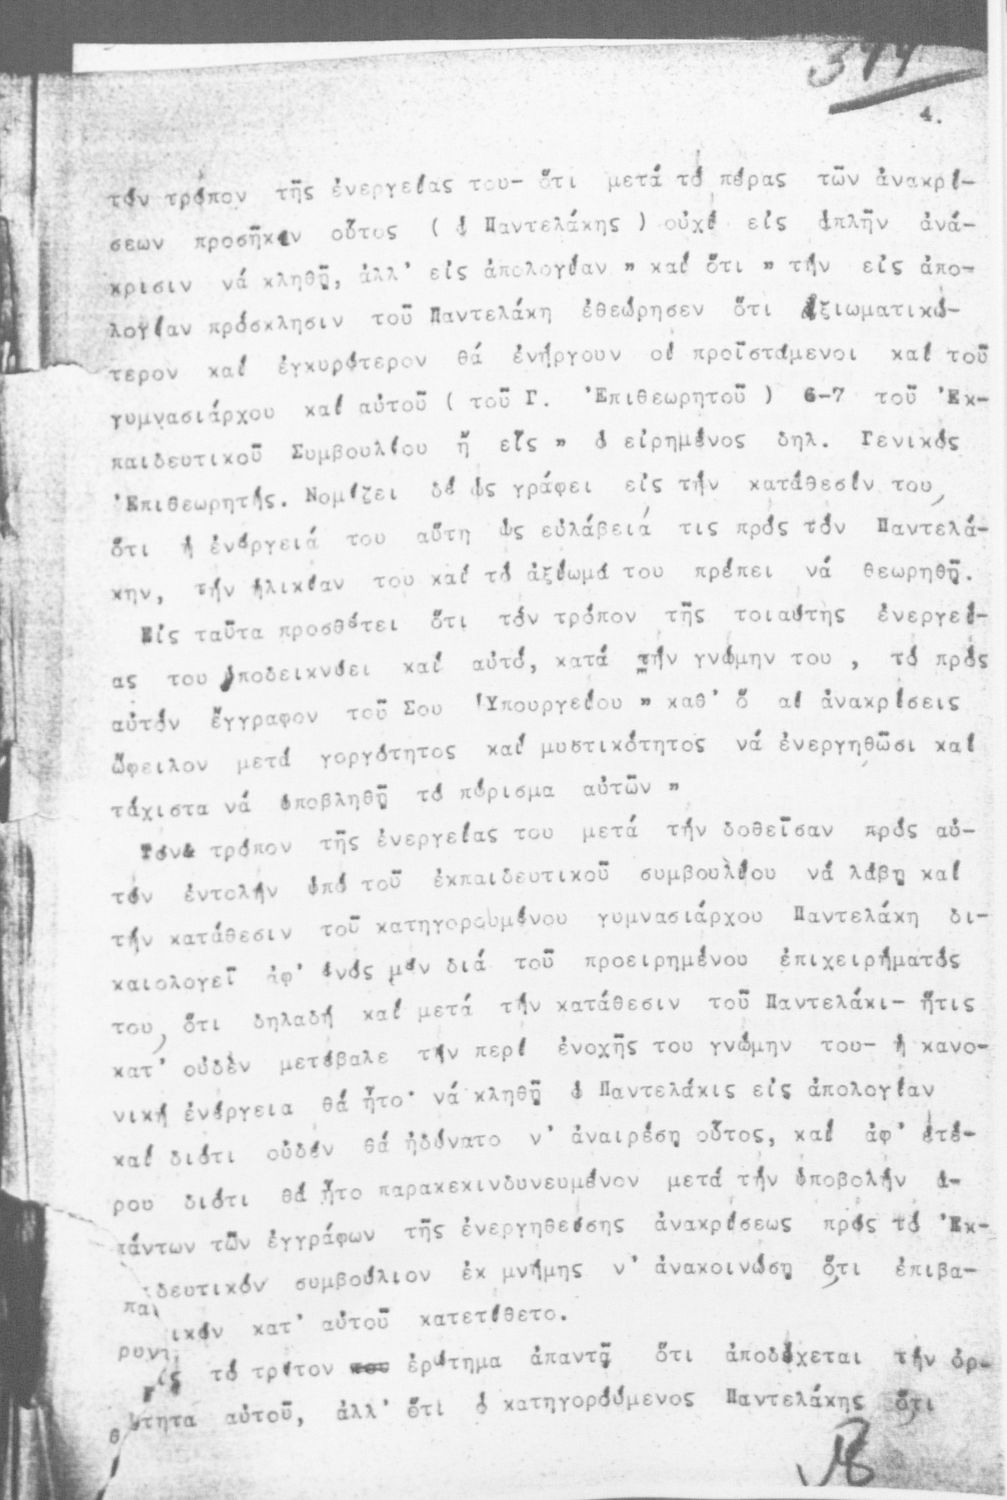 344
4.
τόν τρόπον τῆς ἐνεργείας του- ὅτι μετά τό πέρας τῶν ἀνακρί-
σεων προσῆκεν οὗτος ( ὁ Παντελάκης ) οὐχί εἰς ἁπλῆν ἀνά-
κρισιν νά κληθῇ, ἀλλ' εἰς ἀπολογίαν " καί ὅτι " τήν εἰς ἀπο-
λογίαν πρόσκλησιν τοῦ Παντελάκη ἐθεώρησεν ὅτι ἀξιωματικώ-
τερον καί ἐγκυρότερον θά ἐνήργουν οἱ προϊστάμενοι καί τοῦ
γυμνασιάρχου καί αὐτοῦ ( τοῦ Γ. Ἐπιθεωρητοῦ ) 6-7 τοῦ Ἐκ-
παιδευτικοῦ Συμβουλίου ἤ εἷς " ὁ εἰρημένος δηλ. Γενικός
Ἐπιθεωρητής. Νομίζει δέ ὡς γράφει εἰς τήν κατάθεσίν του,
ὅτι ἡ ἐνέργειά του αὕτη ὡς εὐλάβειά τις πρός τόν Παντελά-
κην, τήν ἡλικίαν του καί τό ἀξίωμά του πρέπει νά θεωρηθῇ.
Εἰς ταῦτα προσθέτει ὅτι τόν τρόπον τῆς τοιαύτης ἐνεργεί-
ας του ὑποδεικνύει καί αὐτό, κατά τήν γνώμην του , τό πρός
αὐτόν ἔγγραφον τοῦ Σου Ὑπουργείου " καθ' ὅ αἱ ἀνακρίσεις
ὤφειλον μετά γοργότητος καί μυστικότητος νά ἐνεργηθῶσι καί
τάχιστα νά ὑποβληθῇ τό πόρισμα αὐτῶν "
Τόν τρόπον τῆς ἐνεργείας του μετά τήν δοθεῖσαν πρός αὐ-
τόν ἐντολήν ὑπό τοῦ ἐκπαιδευτικοῦ συμβουλίου νά λάβῃ καί
τήν κατάθεσιν τοῦ κατηγορουμένου γυμνασιάρχου Παντελάκη δι-
καιολογεῖ ἀφ' ἑνός μέν διά τοῦ προειρημένου ἐπιχειρήματός
του, ὅτι δηλαδή καί μετά τήν κατάθεσιν τοῦ Παντελάκι- ἥτις
κατ' οὐδὲν μετέβαλε τήν περί ἐνοχῆς του γνώμην του- ἡ κανο-
νική ἐνέργεια θά ἦτο· νά κληθῇ ὁ Παντελάκις εἰς ἀπολογίαν
καί διότι οὐδέν θά ἠδύνατο ν' ἀναιρέσῃ οὗτος, καί ἀφ' ἑτέ-
ρου διότι θά ἦτο παρακεκινδυνευμένον μετά τήν ὑποβολήν ἁ-
πάντων τῶν ἐγγράφων τῆς ἐνεργηθείσης ἀνακρίσεως πρός τό Ἐκ-
παιδευτικόν συμβούλιον ἐκ μνήμης ν' ἀνακοινώσῃ ὅ,τι ἐπιβα-
ρυντικόν κατ' αὐτοῦ κατετίθετο.
Εἰς τό τρίτον ἐρώτημα ἀπαντᾷ ὅτι ἀποδέχεται τήν ὀρ-
θότητα αὐτοῦ, ἀλλ' ὅτι ὁ κατηγορούμενος Παντελάκης ὅ,τι